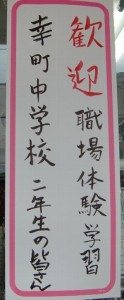 歓迎 職場体験学習
幸町中学校 二年生の皆さん